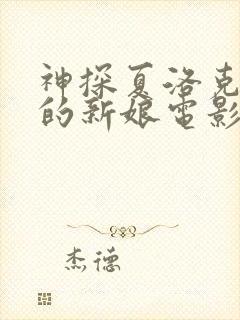 神探夏洛克
的新娘电影
杰德